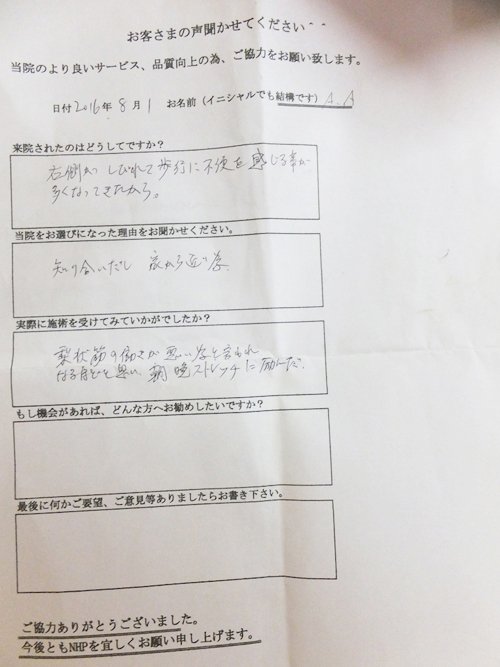 お客さまの声聞かせてください^^
当院のより良いサービス、品質向上の為、ご協力をお願い致します。
日付2016年8月1 お名前（イニシャルでも結構です）A.A
来院されたのはどうしてですか？
右側がしびれて歩行に不便を感じる事が
多くなってきたから。
当院をお選びになった理由をお聞かせください。
知り合いだし 家から近い為
実際に施術を受けてみていかがでしたか？
梨状筋の働きが悪い為と言われ
なる程と思い、朝晩ストレッチに励んだ。
もし機会があれば、どんな方へお勧めしたいですか？
最後に何かご要望、ご意見等ありましたらお書き下さい。
ご協力ありがとうございました。
今後ともNHPを宜しくお願い申し上げます。